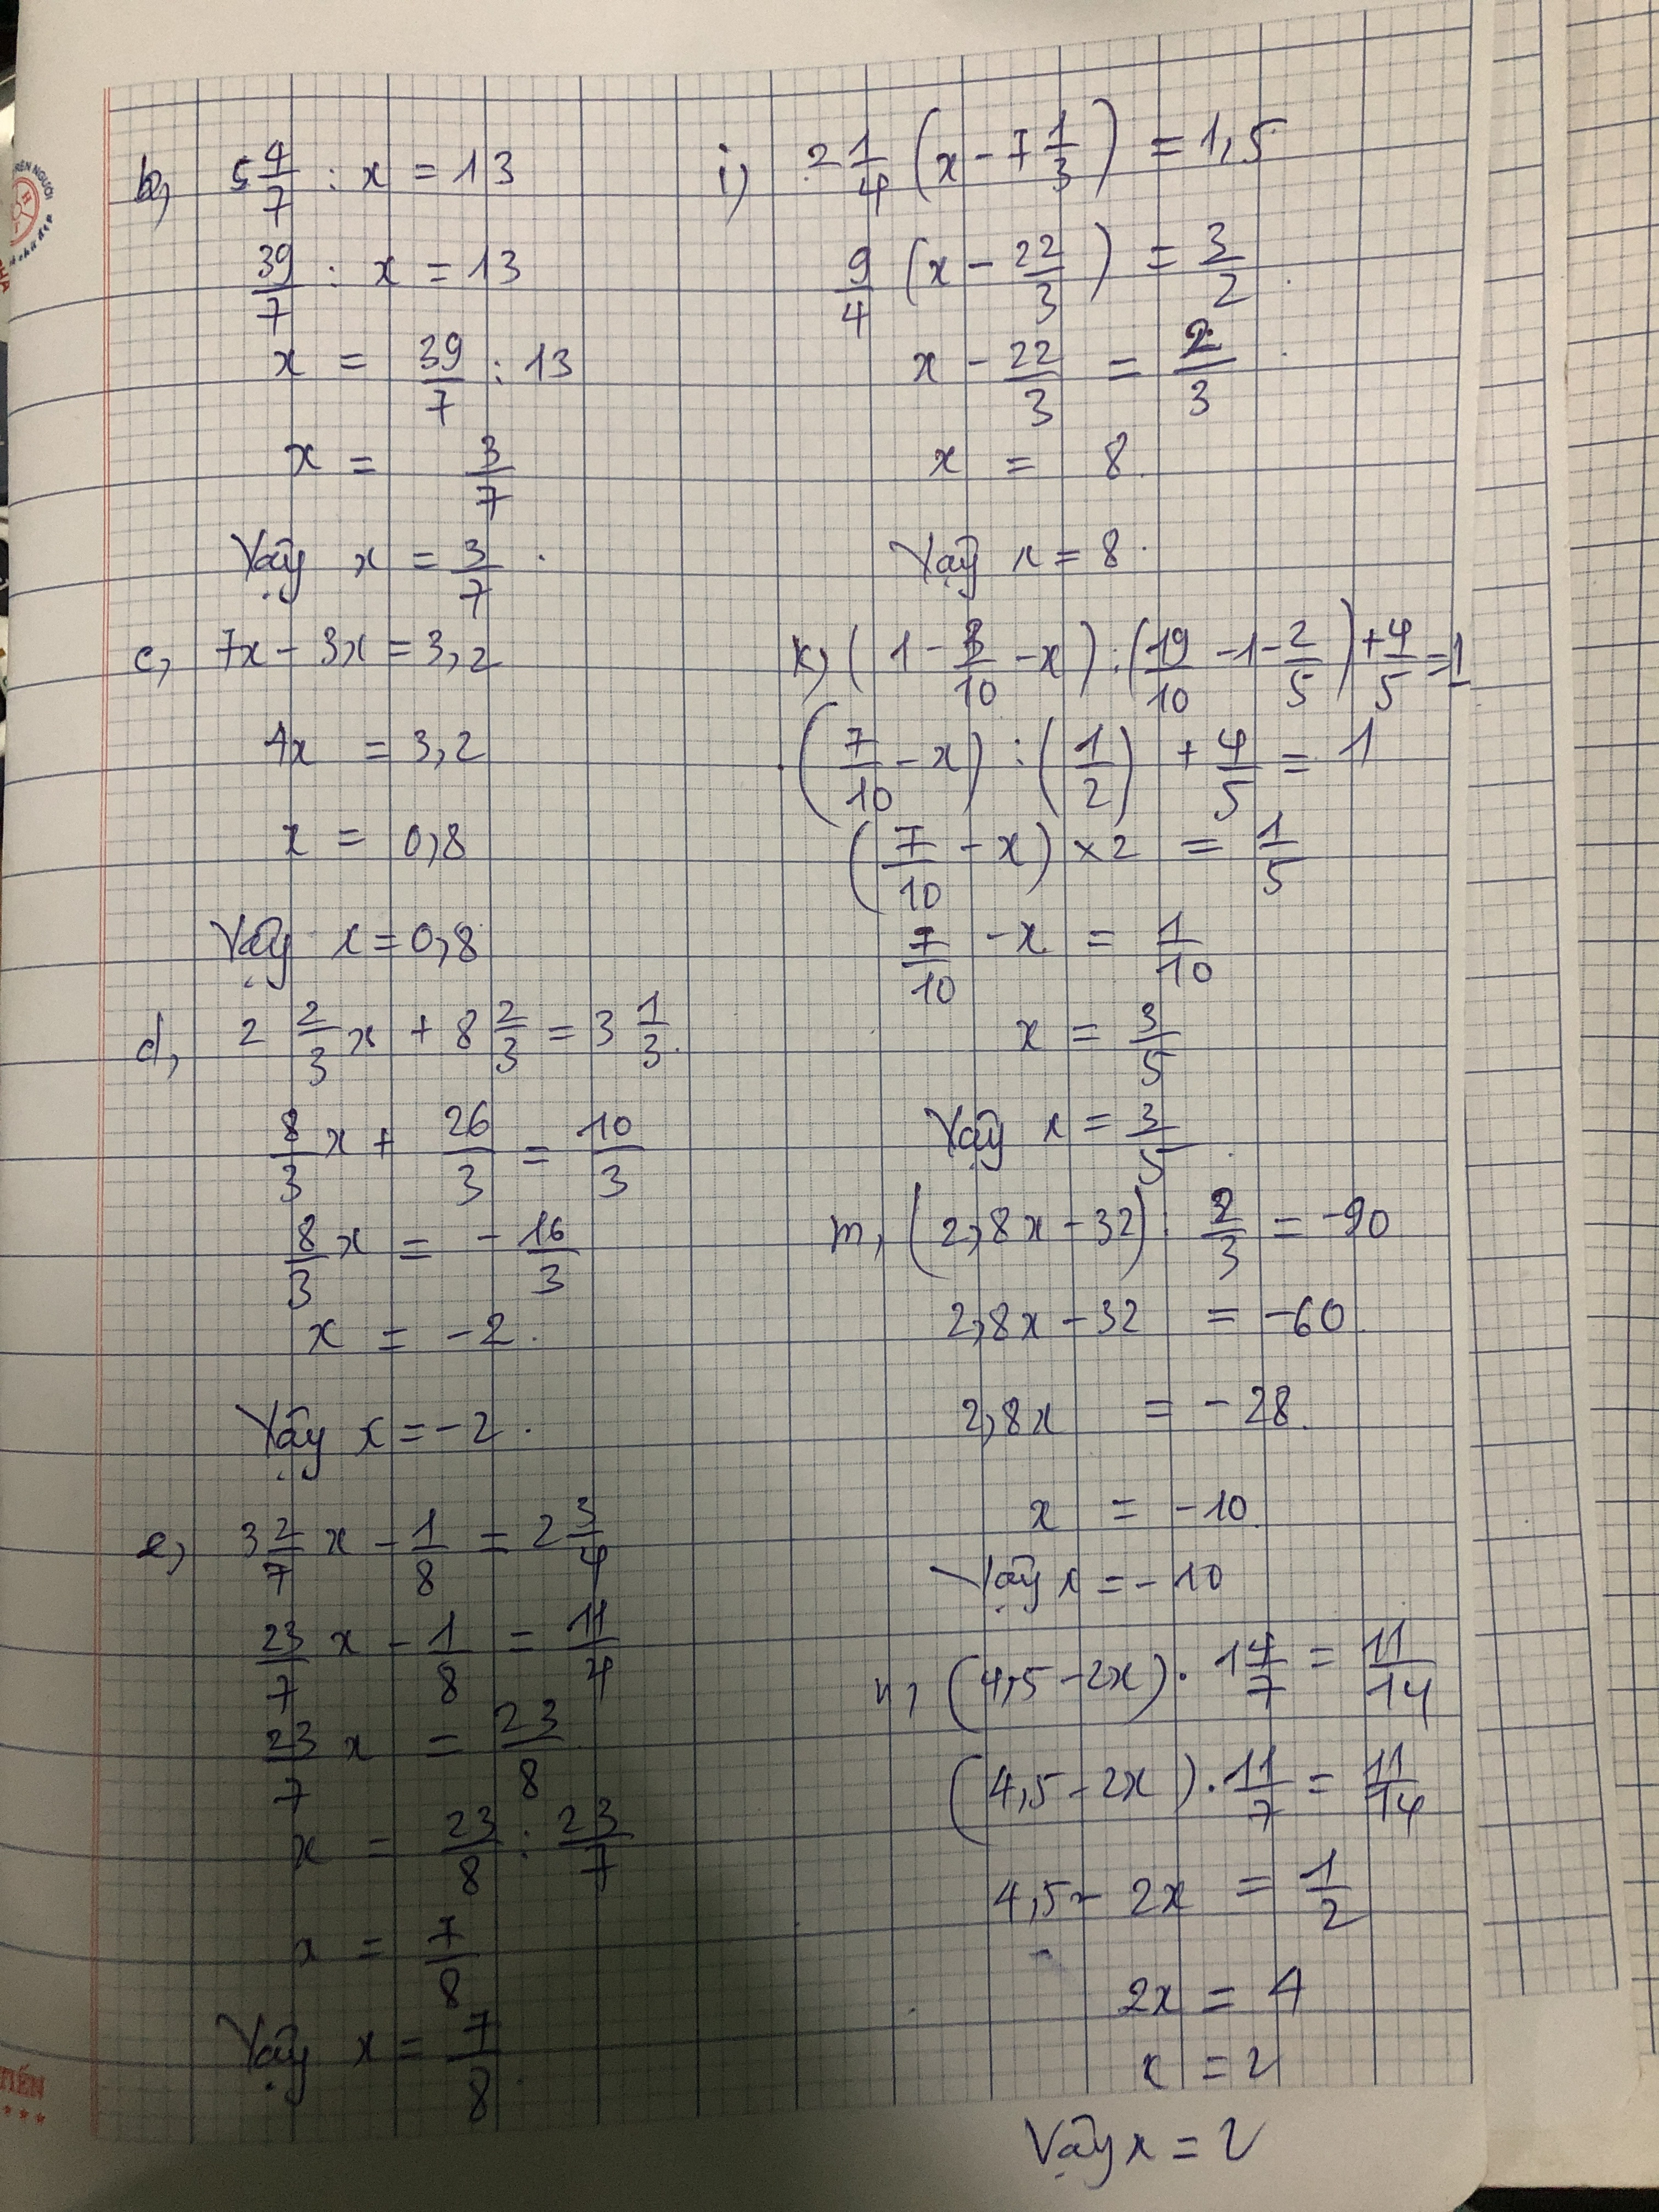 b, 5 4/7 : x = 13
39/7 : x = 13
x = 39/7 : 13
x = 3/7
Vậy x = 3/7.
c, 7x - 3x = 3,2
4x = 3,2
x = 0,8
Vậy x = 0,8
d, 2 2/3 x + 8 2/3 = 3 1/3.
8/3 x + 26/3 = 10/3
8/3 x = - 16/3
x = -2.
Vậy x = -2.
e, 3 2/7 x - 1/8 = 2 3/4
23/7 x - 1/8 = 11/4
23/7 x = 23/8
x = 23/8 : 23/7
x = 7/8
Vậy x = 7/8.
i, 2 1/4 (x - 7 1/3) = 1,5
9/4 (x - 22/3) = 3/2.
x - 22/3 = 2/3.
x = 8.
Vậy x = 8.
k, (1 - 3/10 - x) : (19/10 - 1 - 2/5) + 4/5 = 1
(7/10 - x) : (1/2) + 4/5 = 1
(7/10 - x) × 2 = 1/5
7/10 - x = 1/10
x = 3/5
Vậy x = 3/5.
m, (2,8x - 32) : 2/3 = -90
2,8x - 32 = -60.
2,8x = -28.
x = -10.
Vậy x = -10
n, (4,5 - 2x) . 1 4/7 = 11/14
(4,5 - 2x) . 11/7 = 11/14
4,5 - 2x = 1/2
2x = 4
x = 2
Vậy x = 2